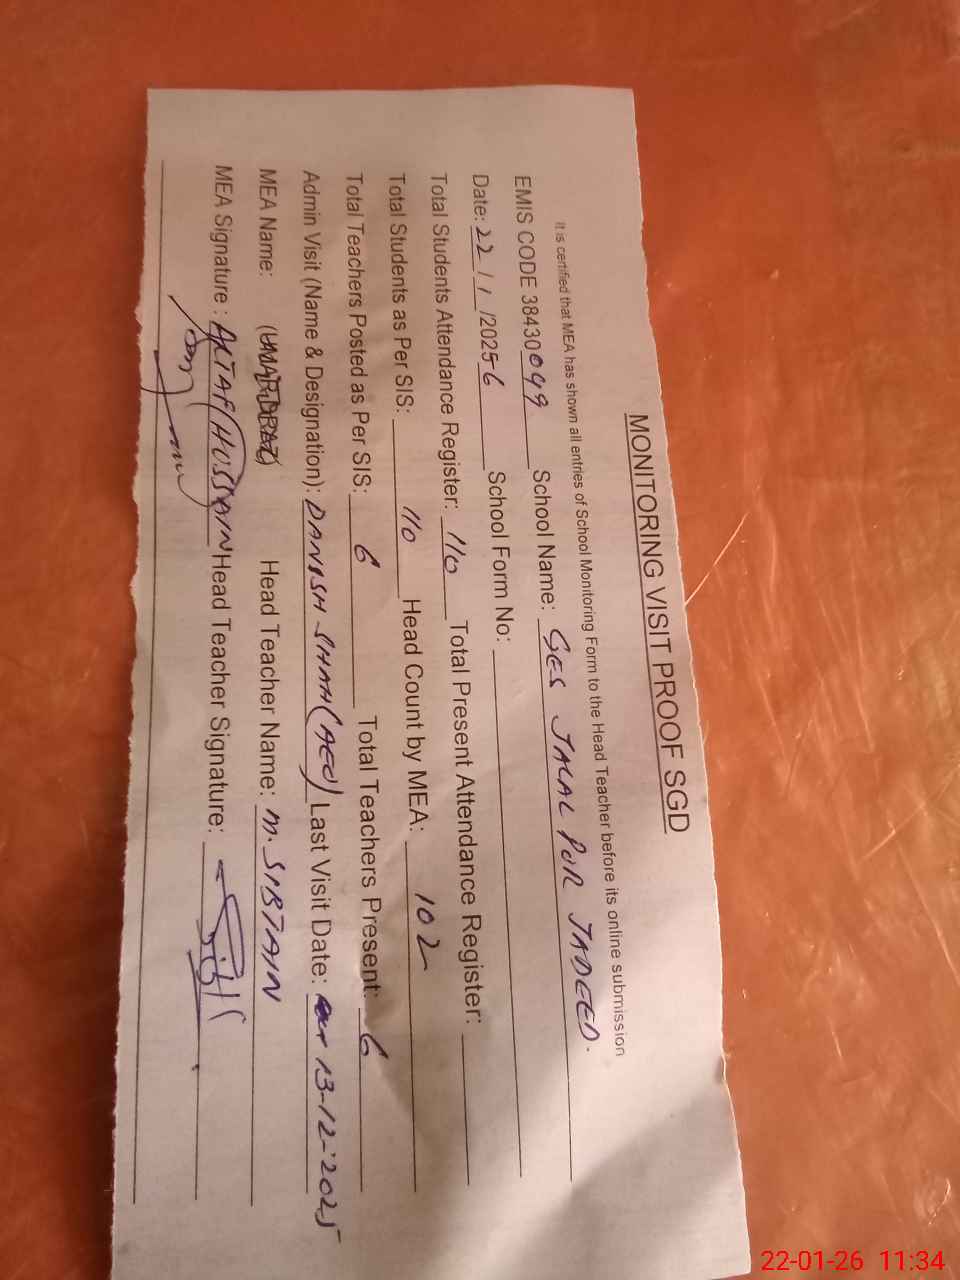 MONITORING VISIT PROOF SGD
It is certified that MEA has shown all entries of School Monitoring Form to the Head Teacher before its online submission
EMIS CODE 38430049 School Name: GES JALAL PUR JADEED.
Date: 22/1/2025-6 School Form No:
Total Students Attendance Register: 110 Total Present Attendance Register:
Total Students as Per SIS: 110 Head Count by MEA: 102
Total Teachers Posted as Per SIS: 6 Total Teachers Present: 6
Admin Visit (Name & Designation): DANISH SHAH (AEO) Last Visit Date: 13-12-2025
MEA Name: (UMAR DRAZ) Head Teacher Name: M. SIBTAIN
MEA Signature: ALTAF HUSSAIN Head Teacher Signature:
22-01-26 11:34